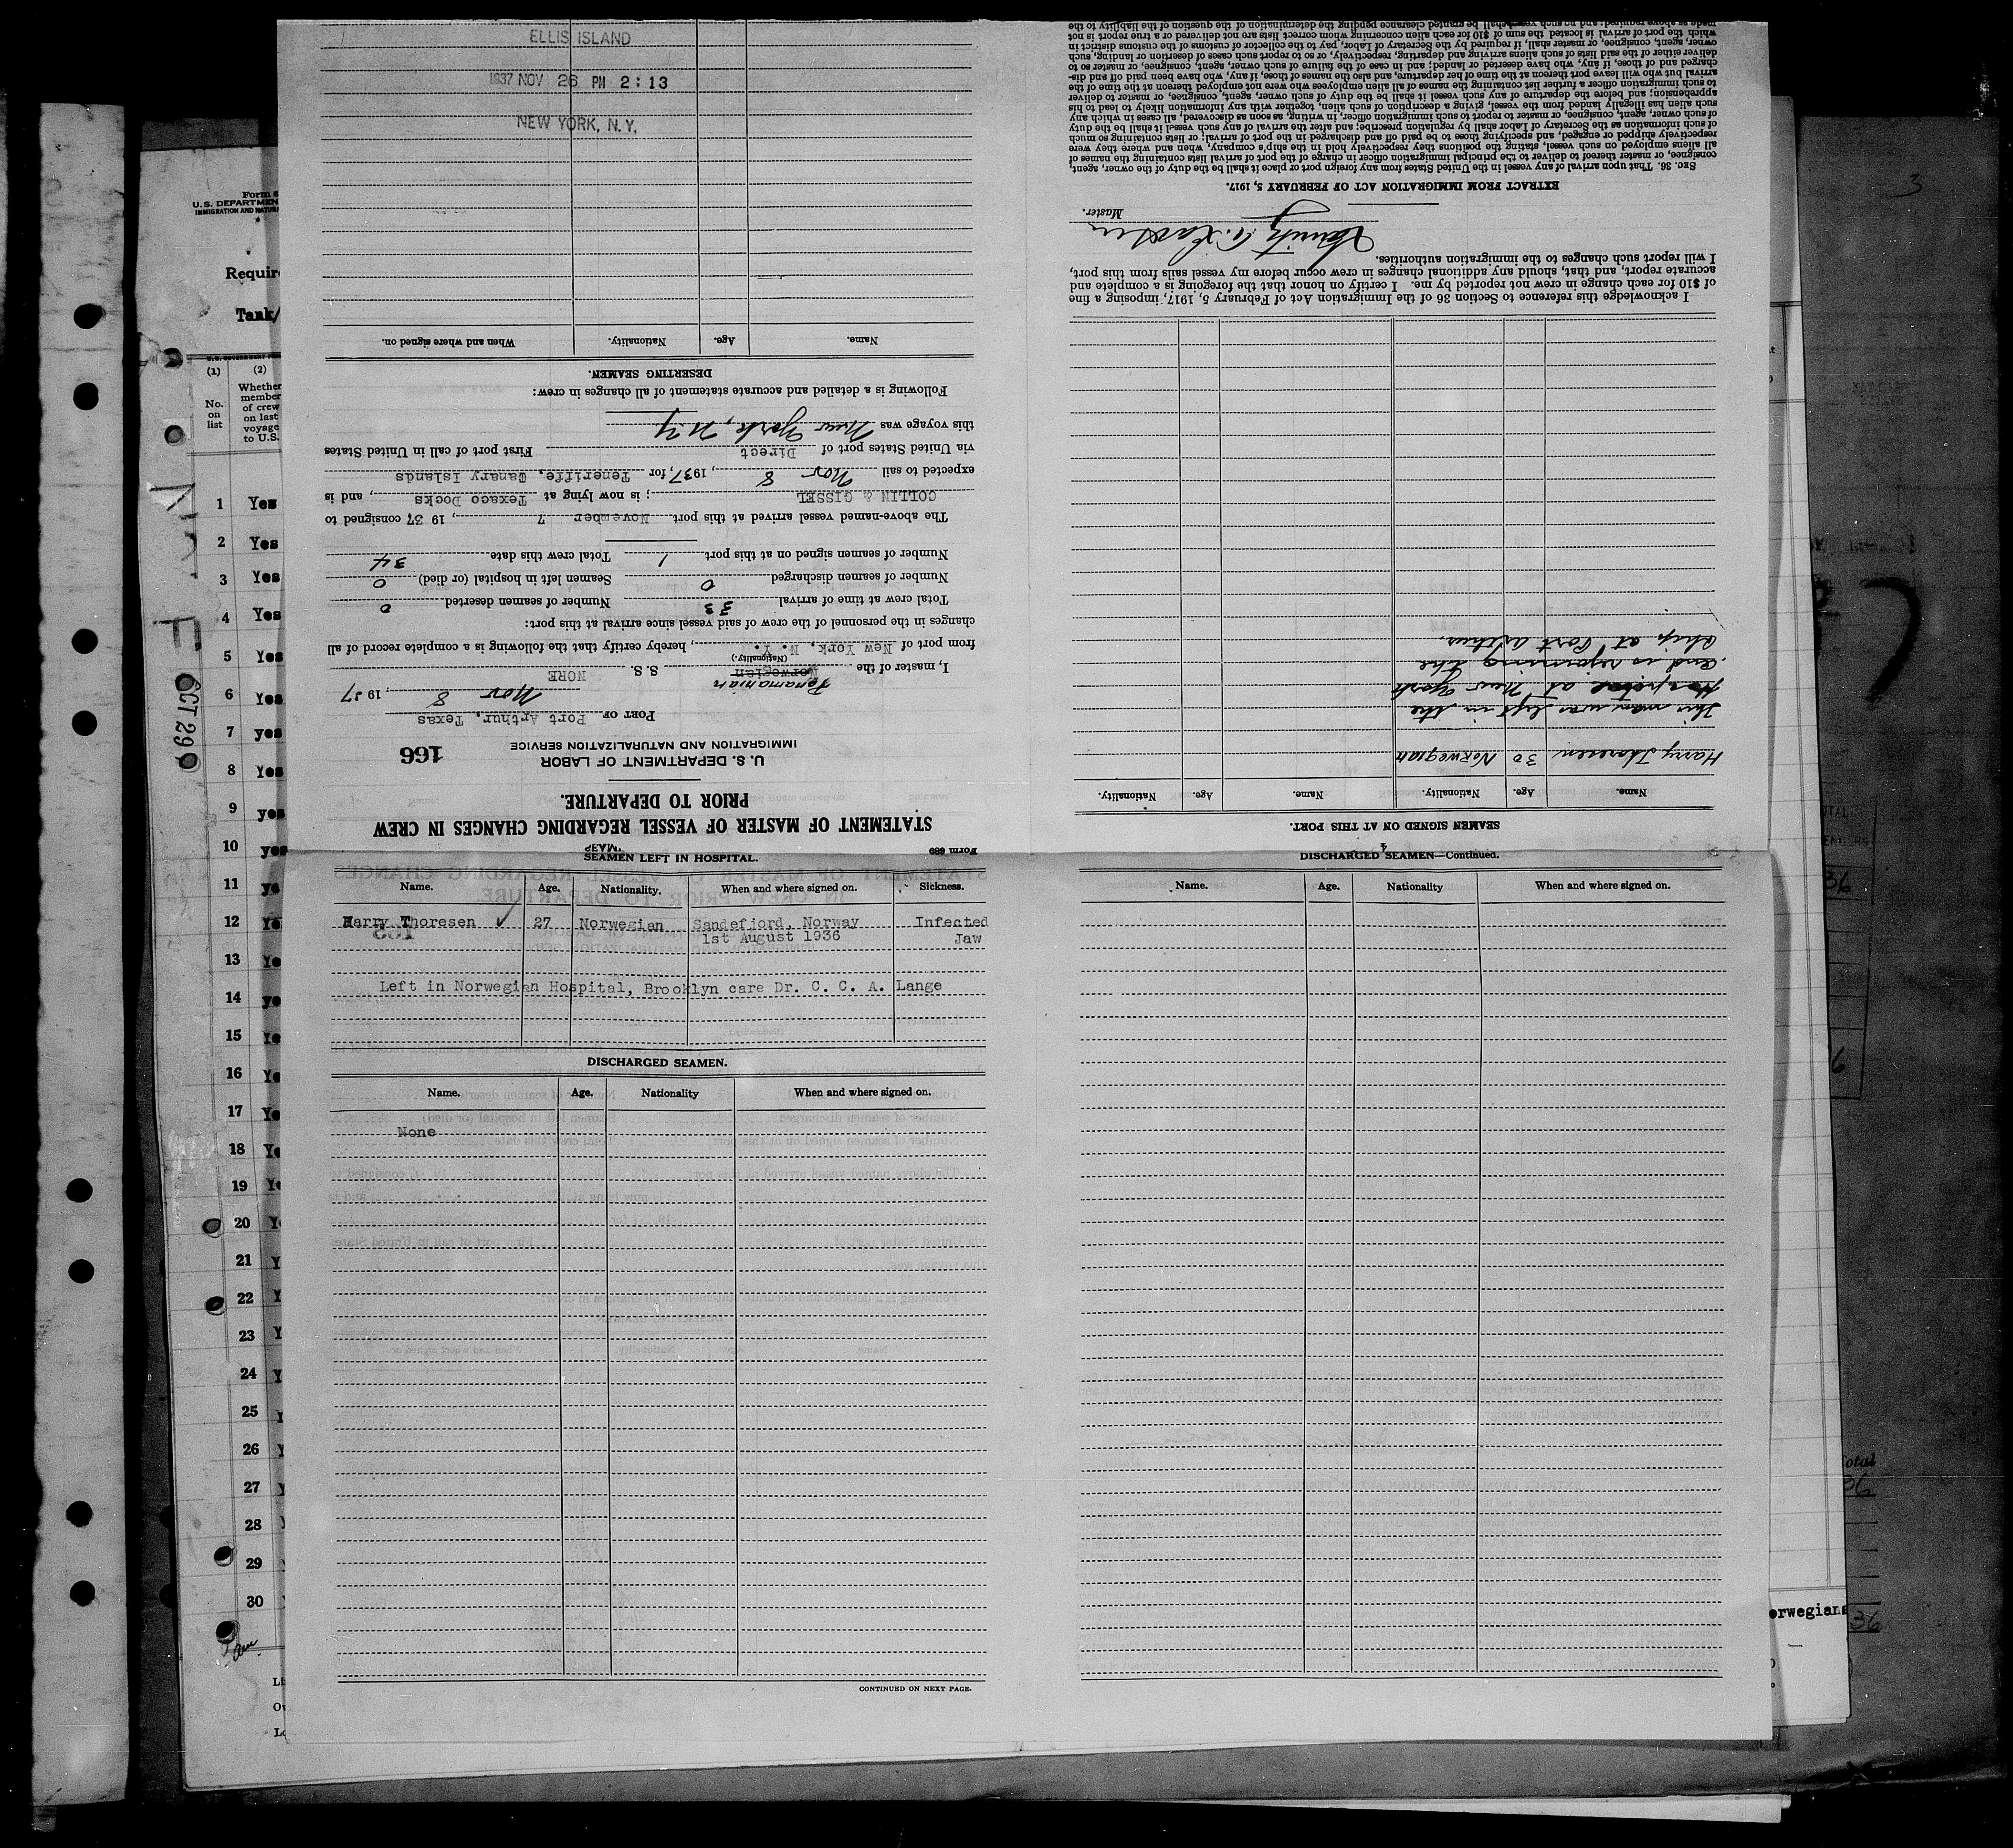 ELLIS ISLAND
1937 NOV 26 PM 2:13
NEW YORK, N. Y.
Form 689
STATEMENT OF MASTER OF VESSEL REGARDING CHANGES IN CREW
PRIOR TO DEPARTURE.
U. S. DEPARTMENT OF LABOR
IMMIGRATION AND NATURALIZATION SERVICE
166
PORT OF Port Arthur, Texas
Nov 8, 1937
Panamanian
I, master of the Norwegian S. S. NORE
(Nationality.)
from port of New York, N. Y., hereby certify that the following is a complete record of all
changes in the personnel of the crew of said vessel since arrival at this port:
Total crew at time of arrival 33 Number of seamen deserted 0
Number of seamen discharged 0 Seamen left in hospital (or died) 0
Number of seamen signed on at this port 1 Total crew this date 34
The above-named vessel arrived at this port November 7, 1937 consigned to
COLLIN & GISSEL; is now lying at Texaco Docks, and is
expected to sail Nov 8, 1937, for Teneriffe, Canary Islands
via United States port of Direct First port of call in United States
this voyage was New York, N.Y.
Following is a detailed and accurate statement of all changes in crew:
DESERTING SEAMEN.
Name. Age. Nationality. When and where signed on.
SEAMEN SIGNED ON AT THIS PORT.
Name. Age. Nationality. Name. Age. Nationality.
Harry Thoresen 30 Norwegian
This man was left in the
Hospital at New York
and is rejoining the
ship at Port Arthur.
I acknowledge this reference to Section 36 of the Immigration Act of February 5, 1917, imposing a fine
of $10 for each change in crew not reported by me. I certify on honor that the foregoing is a complete and
accurate report, and that, should any additional changes in crew occur before my vessel sails from this port,
I will report such changes to the immigration authorities.
Master.
EXTRACT FROM IMMIGRATION ACT OF FEBRUARY 5, 1917.
SEC. 36. That upon arrival of any vessel in the United States from any foreign port or place it shall be the duty of the owner, agent,
consignee, or master thereof to deliver to the principal immigration officer in charge of the port of arrival lists containing the names of
all aliens employed on such vessel, stating the positions they respectively hold in the ship's company, when and where they were
respectively shipped or engaged, and specifying those to be paid off and discharged in the port of arrival; or lists containing so much
of such information as the Secretary of Labor shall by regulation prescribe; and after the arrival of any such vessel it shall be the duty
of such owner, agent, consignee, or master to report to such immigration officer, in writing, as soon as discovered, all cases in which any
such alien has illegally landed from the vessel, giving a description of such alien, together with any information likely to lead to his
apprehension; and before the departure of any such vessel it shall be the duty of such owner, agent, consignee, or master to deliver
to such immigration officer a further list containing the names of all alien employees who were not employed thereon at the time of the
arrival but who will leave port thereon at the time of her departure, and also the names of those, if any, who have been paid off and dis-
charged and of those, if any, who have deserted or landed; and in case of the failure of such owner, agent, consignee, or master so to
deliver either of the said lists of such aliens arriving and departing, respectively, or so to report such cases of desertion or landing, such
owner, agent, consignee, or master shall, if required by the Secretary of Labor, pay to the collector of customs of the customs district in
which the port of arrival is located the sum of $10 for each alien concerning whom correct lists are not delivered or a true report is not
made as above required; and no such vessel shall be granted clearance pending the determination of the question of the liability to the
SEAMEN LEFT IN HOSPITAL.
Name. Age. Nationality. When and where signed on. Sickness.
Harry Thoresen ✓ 27 Norwegian Sandefjord, Norway Infected
1st August 1936 Jaw
Left in Norwegian Hospital, Brooklyn care Dr. C. C. A. Lange
DISCHARGED SEAMEN.
Name. Age. Nationality When and where signed on.
None
CONTINUED ON NEXT PAGE.
4
DISCHARGED SEAMEN—Continued.
Name. Age. Nationality When and where signed on.
Form
U. S. DEPARTMEN
IMMIGRATION AND NATURA
Requir
Tank/
(1) (2)
No. on list
Whether member of crew on last voyage to U.S.
1 Yes
2 Yes
3 Yes
4 Yes
5 Yes
6 Yes
7 yes
8 Yes
9 yes
10 yes
11 ye
12 Ye
13 Ye
14 ye
15 Ye
16 Ye
17 Ye
18 Ye
19 Ye
20 Y
21 Y
22 Y
23 Y
24 Y
25 Y
26 Y
27 Y
28
29
30
OCT 29
3
7
36
otal
36
orwegians
36